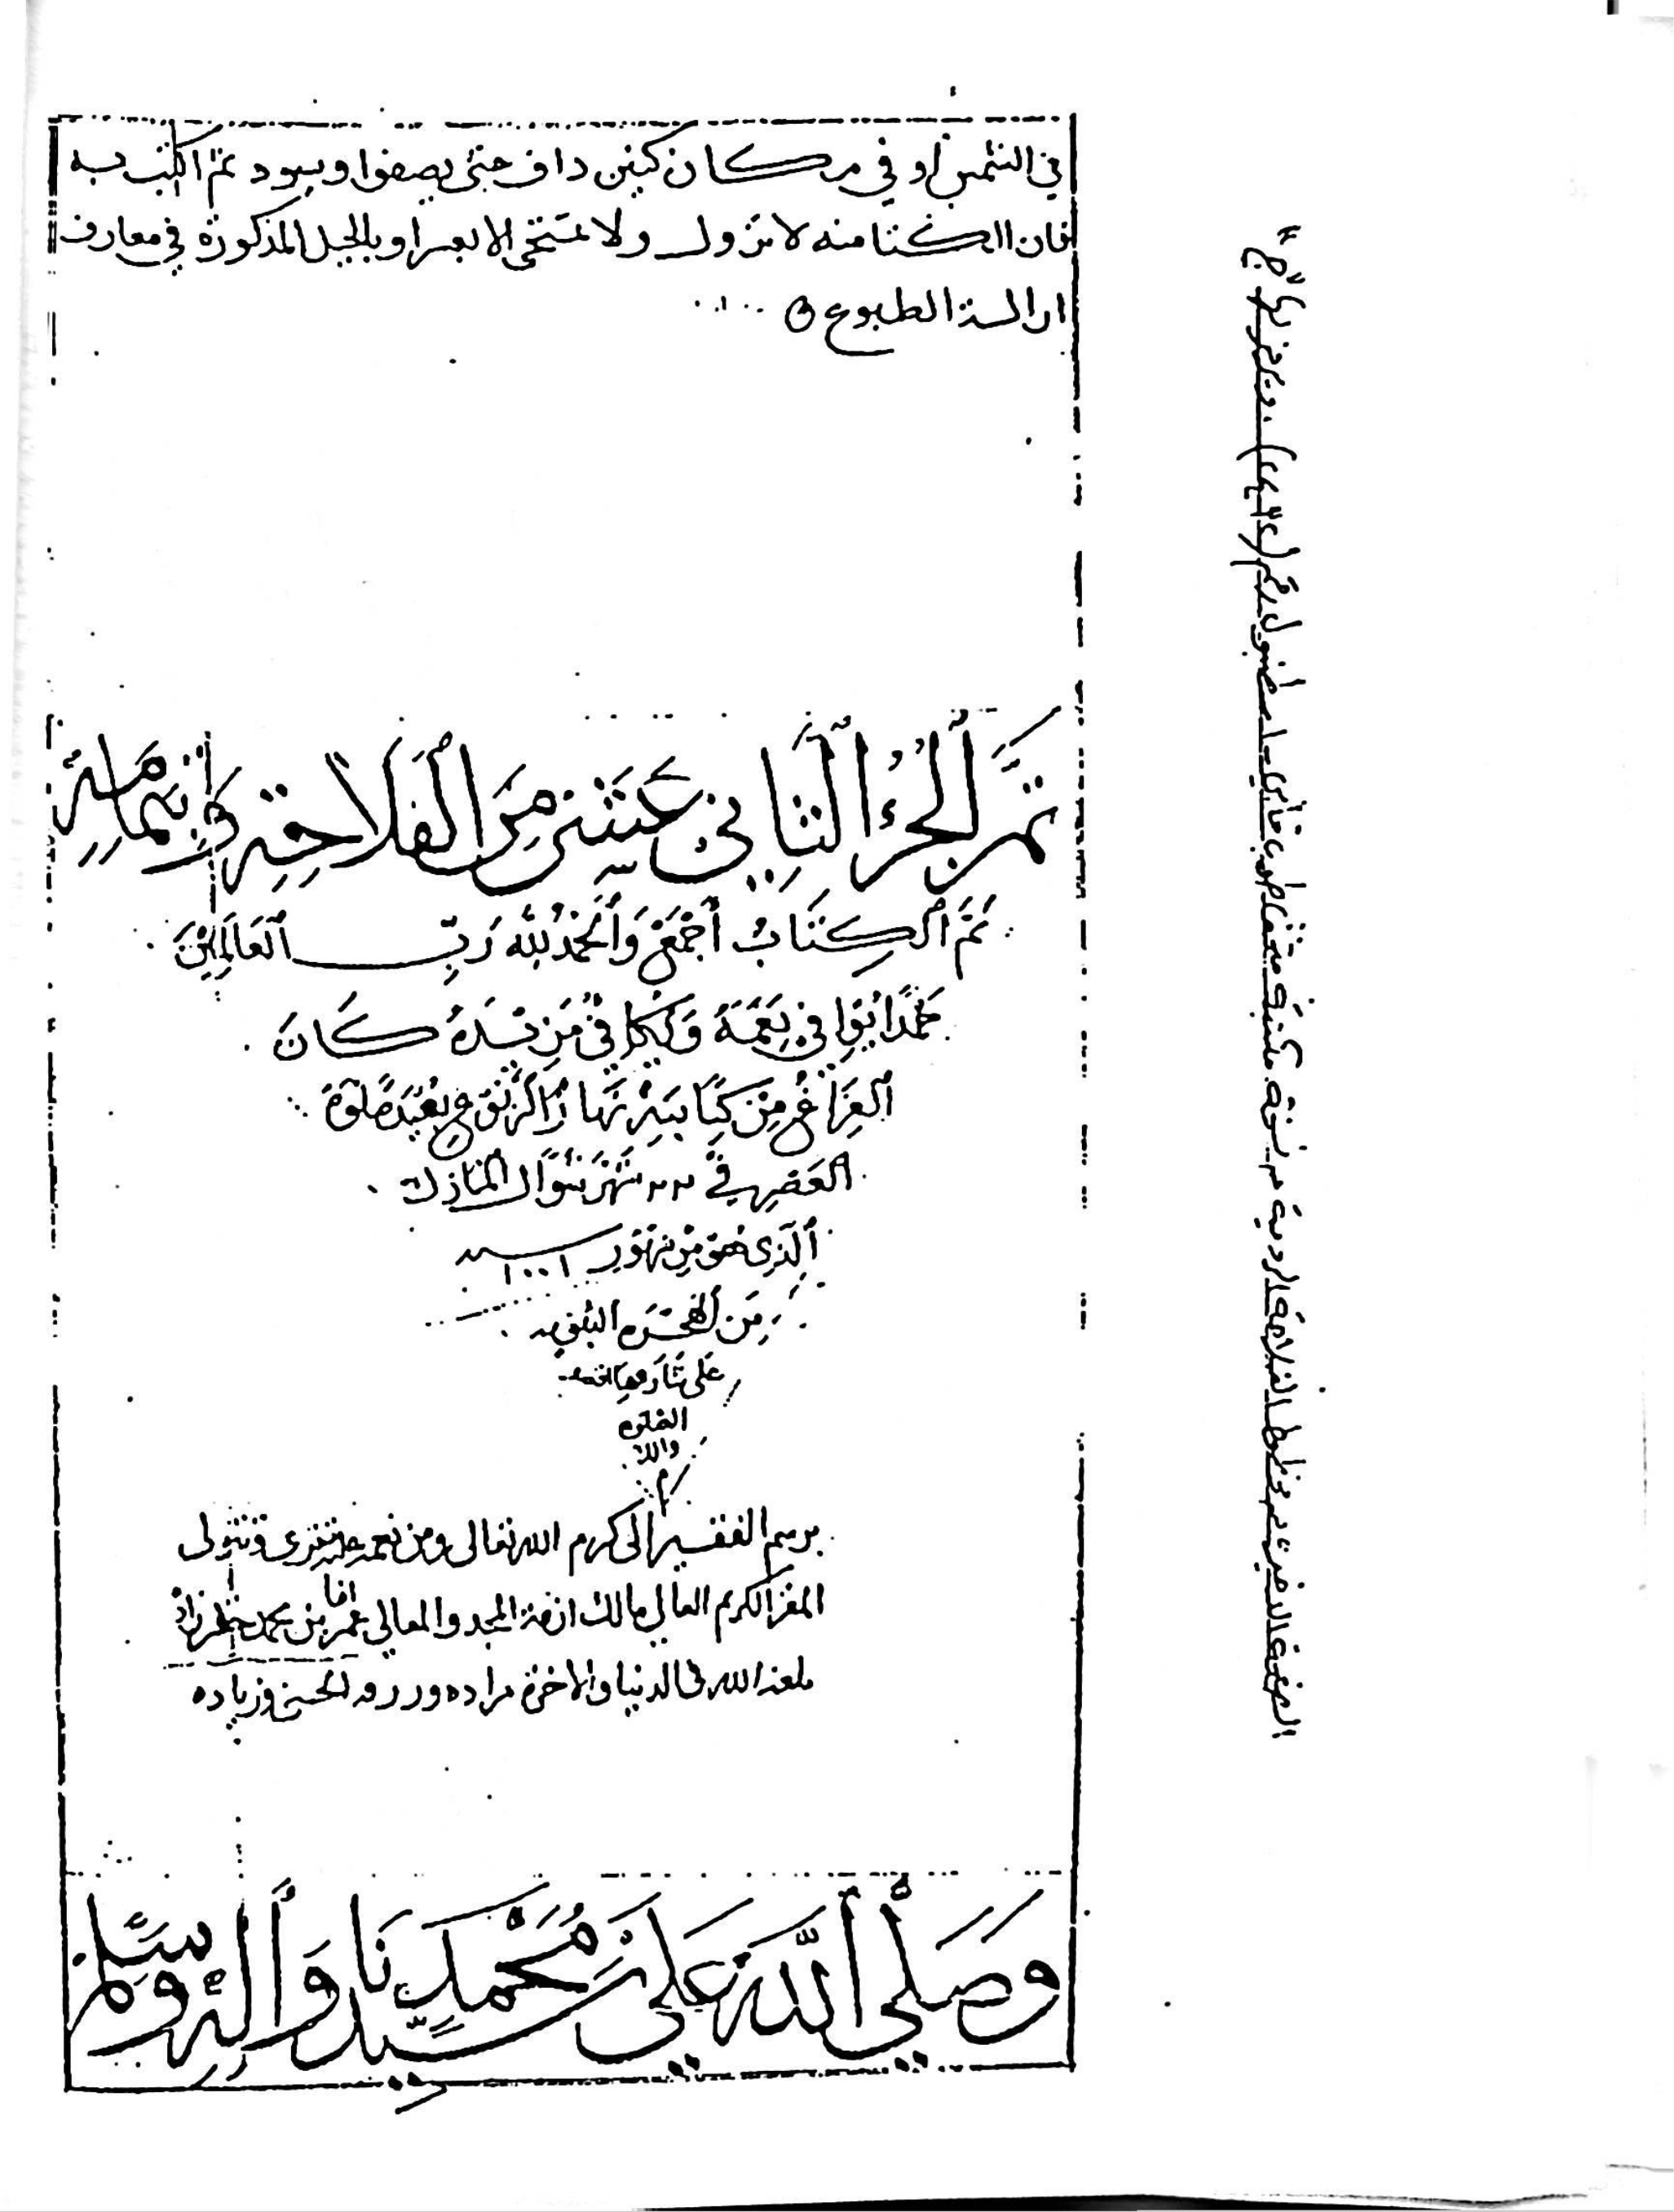 في الشمس أو في مكان كنين دافي حتى يصفوا ويسود ثم اكتب به
فان الكتابة منه لا تزول ولا تمتحى الا بعسر او بالحيل المذكورة في معارف
الطبوع
تم الجزء الثاني عشر من الفلاحة وبتمامه
تم الكتاب أجمع والحمد لله رب العالمين
حمدا يوافي نعمه ويكافي مزيده كان
الفراغ من كتابته نهار بعيد صلوة
العصر في ٢٢ شهر شوال المبارك
الذي هو من شهور سنة ١٠٠١
من الهجرة النبويه
على
الصلوة
والسلام
برسم الفقير الى كرم الله تعالى ومن نعمه عليه تترى وتتولى
المقر الكريم العالي مالك ازمة المجد والمعالي عمر اغا بن محمد
بلغه الله في الدنيا والاخرة مراده ورزقه الحسنى وزياده
وصلى الله على سيدنا محمد وآله وسلم
الصفحة الاخيرة من مخطوط الفلاحة الرومية من نسخة مكتبة متحف طوبقابي باسطنبول رقم